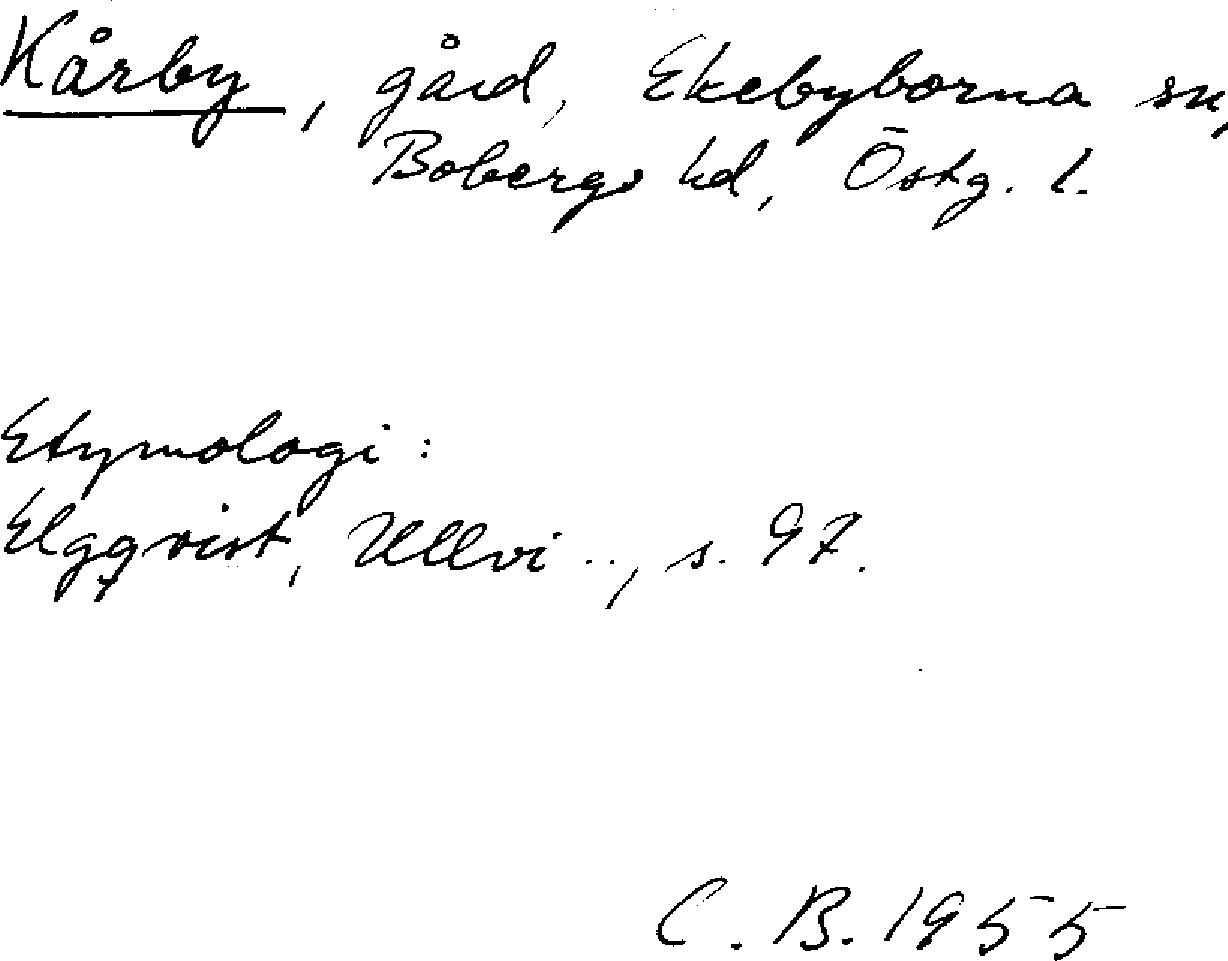 Kårby, gård, Ekebyborna sn,
Bobergs hd, Östg. l.
Etymologi:
Elgqvist, Ullvi .., s. 97.
C. B. 1955